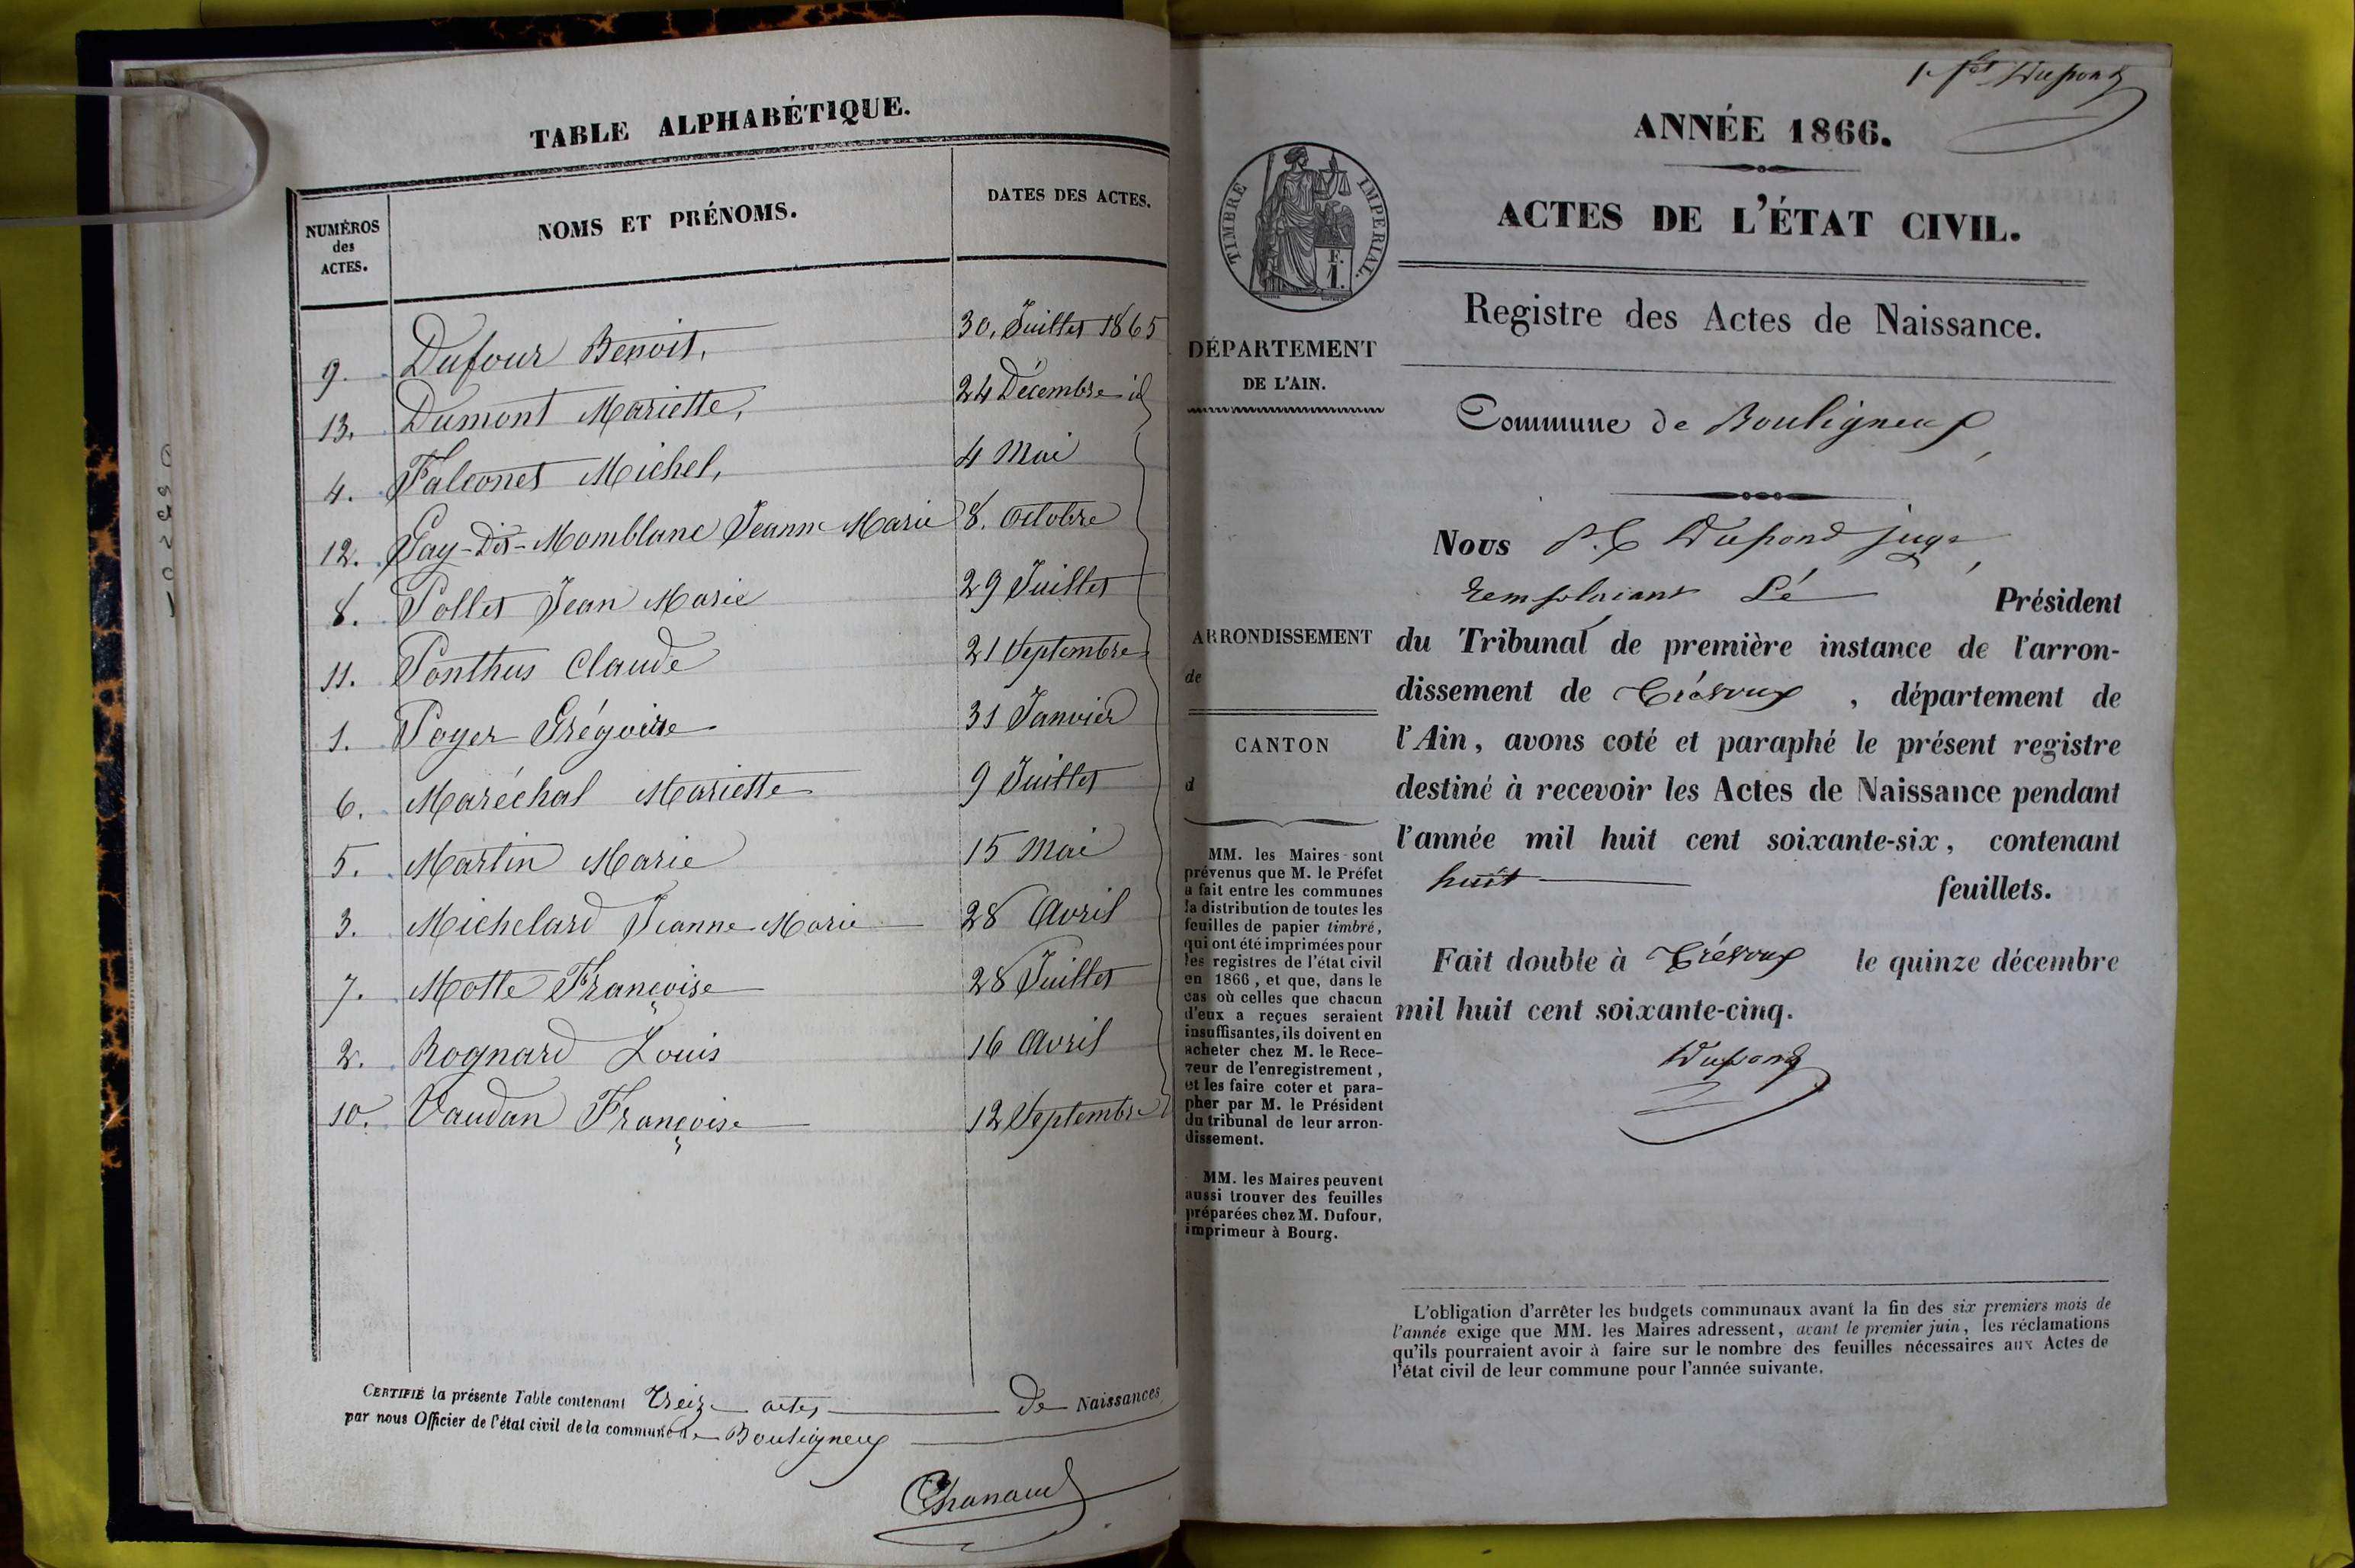 TABLE ALPHABÉTIQUE.
NUMÉROS des ACTES. NOMS ET PRÉNOMS. DATES DES ACTES.
9. Dufour Benoit, 30, Juillet 1865
13. Dumont Mariette, 24 Décembre id
4. Falconet Michel, 4 Mai
12. Gay-dit-Momblanc Jeanne Marie 8. Octobre
8. Pollet Jean Marie 29 Juillet
11. Ponthus Claude 21 Septembre
1. Poyer Grégoire 31 Janvier
6. Maréchal Mariette 9 Juillet
5. Martin Marie 15 Mai
3. Michelard Jeanne-Marie 28 Avril
7. Motte Françoise 28 Juillet
2. Rognard Louis 16 Avril
10. Vaudan Françoise 12 Septembre
CERTIFIÉ la présente Table contenant Treize actes de Naissances
par nous Officier de l'état civil de la commune de Bouligneux
Chanaud
1er ft Dupond
ANNÉE 1866.
ACTES DE L'ÉTAT CIVIL.
TIMBRE IMPÉRIAL.
F.
1.
Registre des Actes de Naissance.
DÉPARTEMENT
DE L'AIN.
Commune de Bouligneux
ARRONDISSEMENT
de
CANTON
d
MM. les Maires sont
prévenus que M. le Préfet
a fait entre les communes
la distribution de toutes les
feuilles de papier timbré,
qui ont été imprimées pour
les registres de l'état civil
en 1866, et que, dans le
cas où celles que chacun
d'eux a reçues seraient
insuffisantes, ils doivent en
acheter chez M. le Rece-
veur de l'enregistrement,
et les faire coter et para-
pher par M. le Président
du tribunal de leur arron-
dissement.
MM. les Maires peuvent
aussi trouver des feuilles
préparées chez M. Dufour,
imprimeur à Bourg.
Nous Dupond juge,
remplaçant Le Président
du Tribunal de première instance de l'arron-
dissement de Trévoux, département de
l'Ain, avons coté et paraphé le présent registre
destiné à recevoir les Actes de Naissance pendant
l'année mil huit cent soixante-six, contenant
huit feuillets.
Fait double à Trévoux le quinze décembre
mil huit cent soixante-cinq.
Dupond
L'obligation d'arrêter les budgets communaux avant la fin des six premiers mois de
l'année exige que MM. les Maires adressent, avant le premier juin, les réclamations
qu'ils pourraient avoir à faire sur le nombre des feuilles nécessaires aux Actes de
l'état civil de leur commune pour l'année suivante.